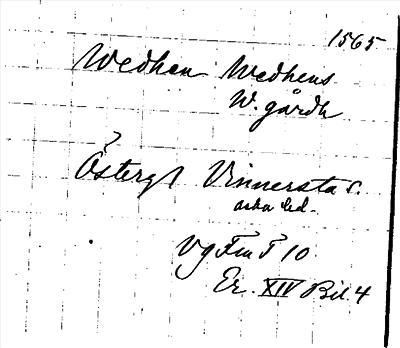 1565
Wedhen Wedhens
W. gårdh
?
Östergl Vinnersta s.
aska hd.
Vg Fm F 10
Er. XIV Bil. 4